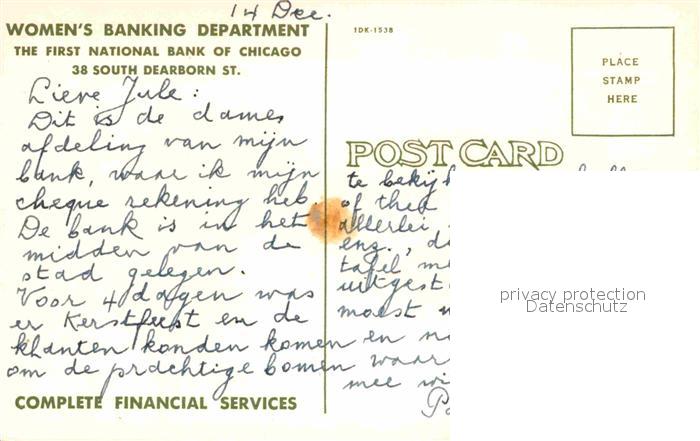 14 Dec.
WOMEN'S BANKING DEPARTMENT
THE FIRST NATIONAL BANK OF CHICAGO
38 SOUTH DEARBORN ST.
Lieve Jule:
Dit is de dames
afdeling van mijn
bank, waar ik mijn
cheque rekening heb.
De bank is in het
midden van de
stad gelegen.
Voor 4 dagen was
er Kerstfeest en de
klanten konden komen
om de prachtige bomen
COMPLETE FINANCIAL SERVICES
1DK-1538
PLACE
STAMP
HERE
POST CARD
te
of thee
allerlei
enz.,
tafel
uitgest
moest
en
waar
mee
privacy protection
Datenschutz